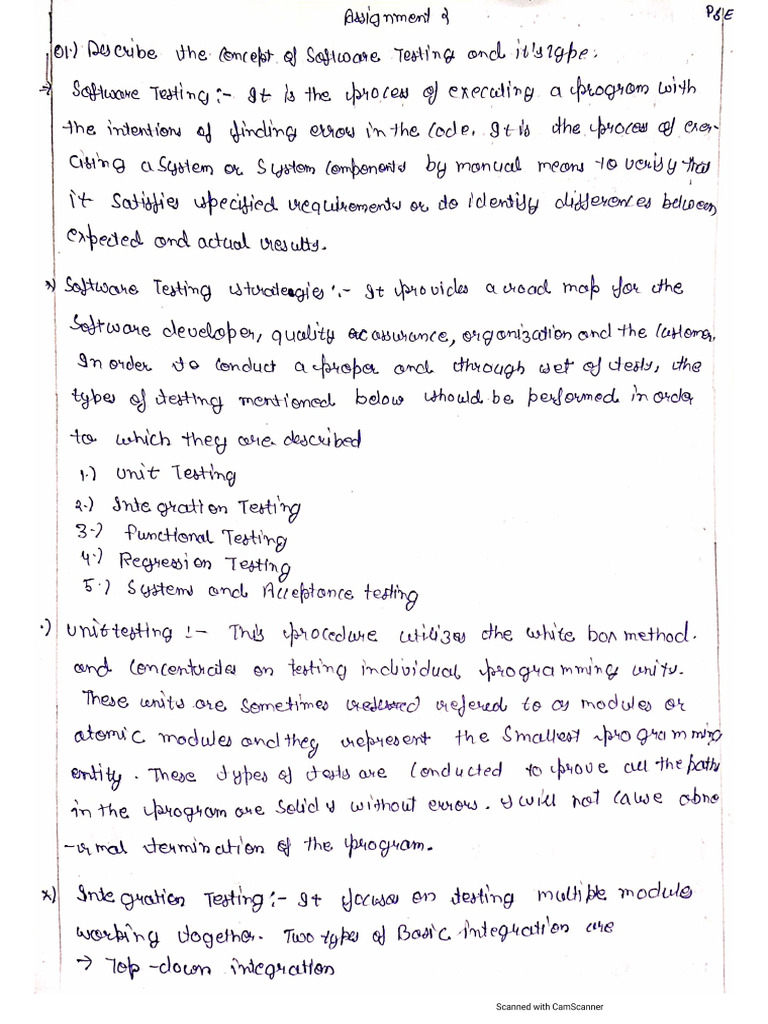 Assignment 2
PSE
Q1.) Describe the concept of Software Testing and it's type.
→ Software Testing :- It is the process of executing a program with
the intentions of finding errors in the code. It is the process of exer-
cising a system or system components by manual means to verify that
it satisfies specified requirements or to identify differences between
expected and actual results.
*) Software Testing strategies :- It provides a road map for the
Software developer, quality assurance, organization and the customer.
In order to conduct a proper and through set of tests, the
types of testing mentioned below should be performed in order
to which they are described
1.) Unit Testing
2.) Integration Testing
3.) Functional Testing
4.) Regression Testing
5.) System and Acceptance testing
•) Unit testing :- This procedure utilizes the white box method.
and concentrates on testing individual programming units.
These units are sometimes refered to as modules or
atomic modules and they represent the smallest programming
entity. These types of tests are conducted to prove all the paths
in the program are solid & without errors. & will not cause abno
-rmal termination of the program.
*) Integration Testing :- It focuses on testing multiple module
working together. Two types of Basic integration are
→ Top-down integration
Scanned with CamScanner